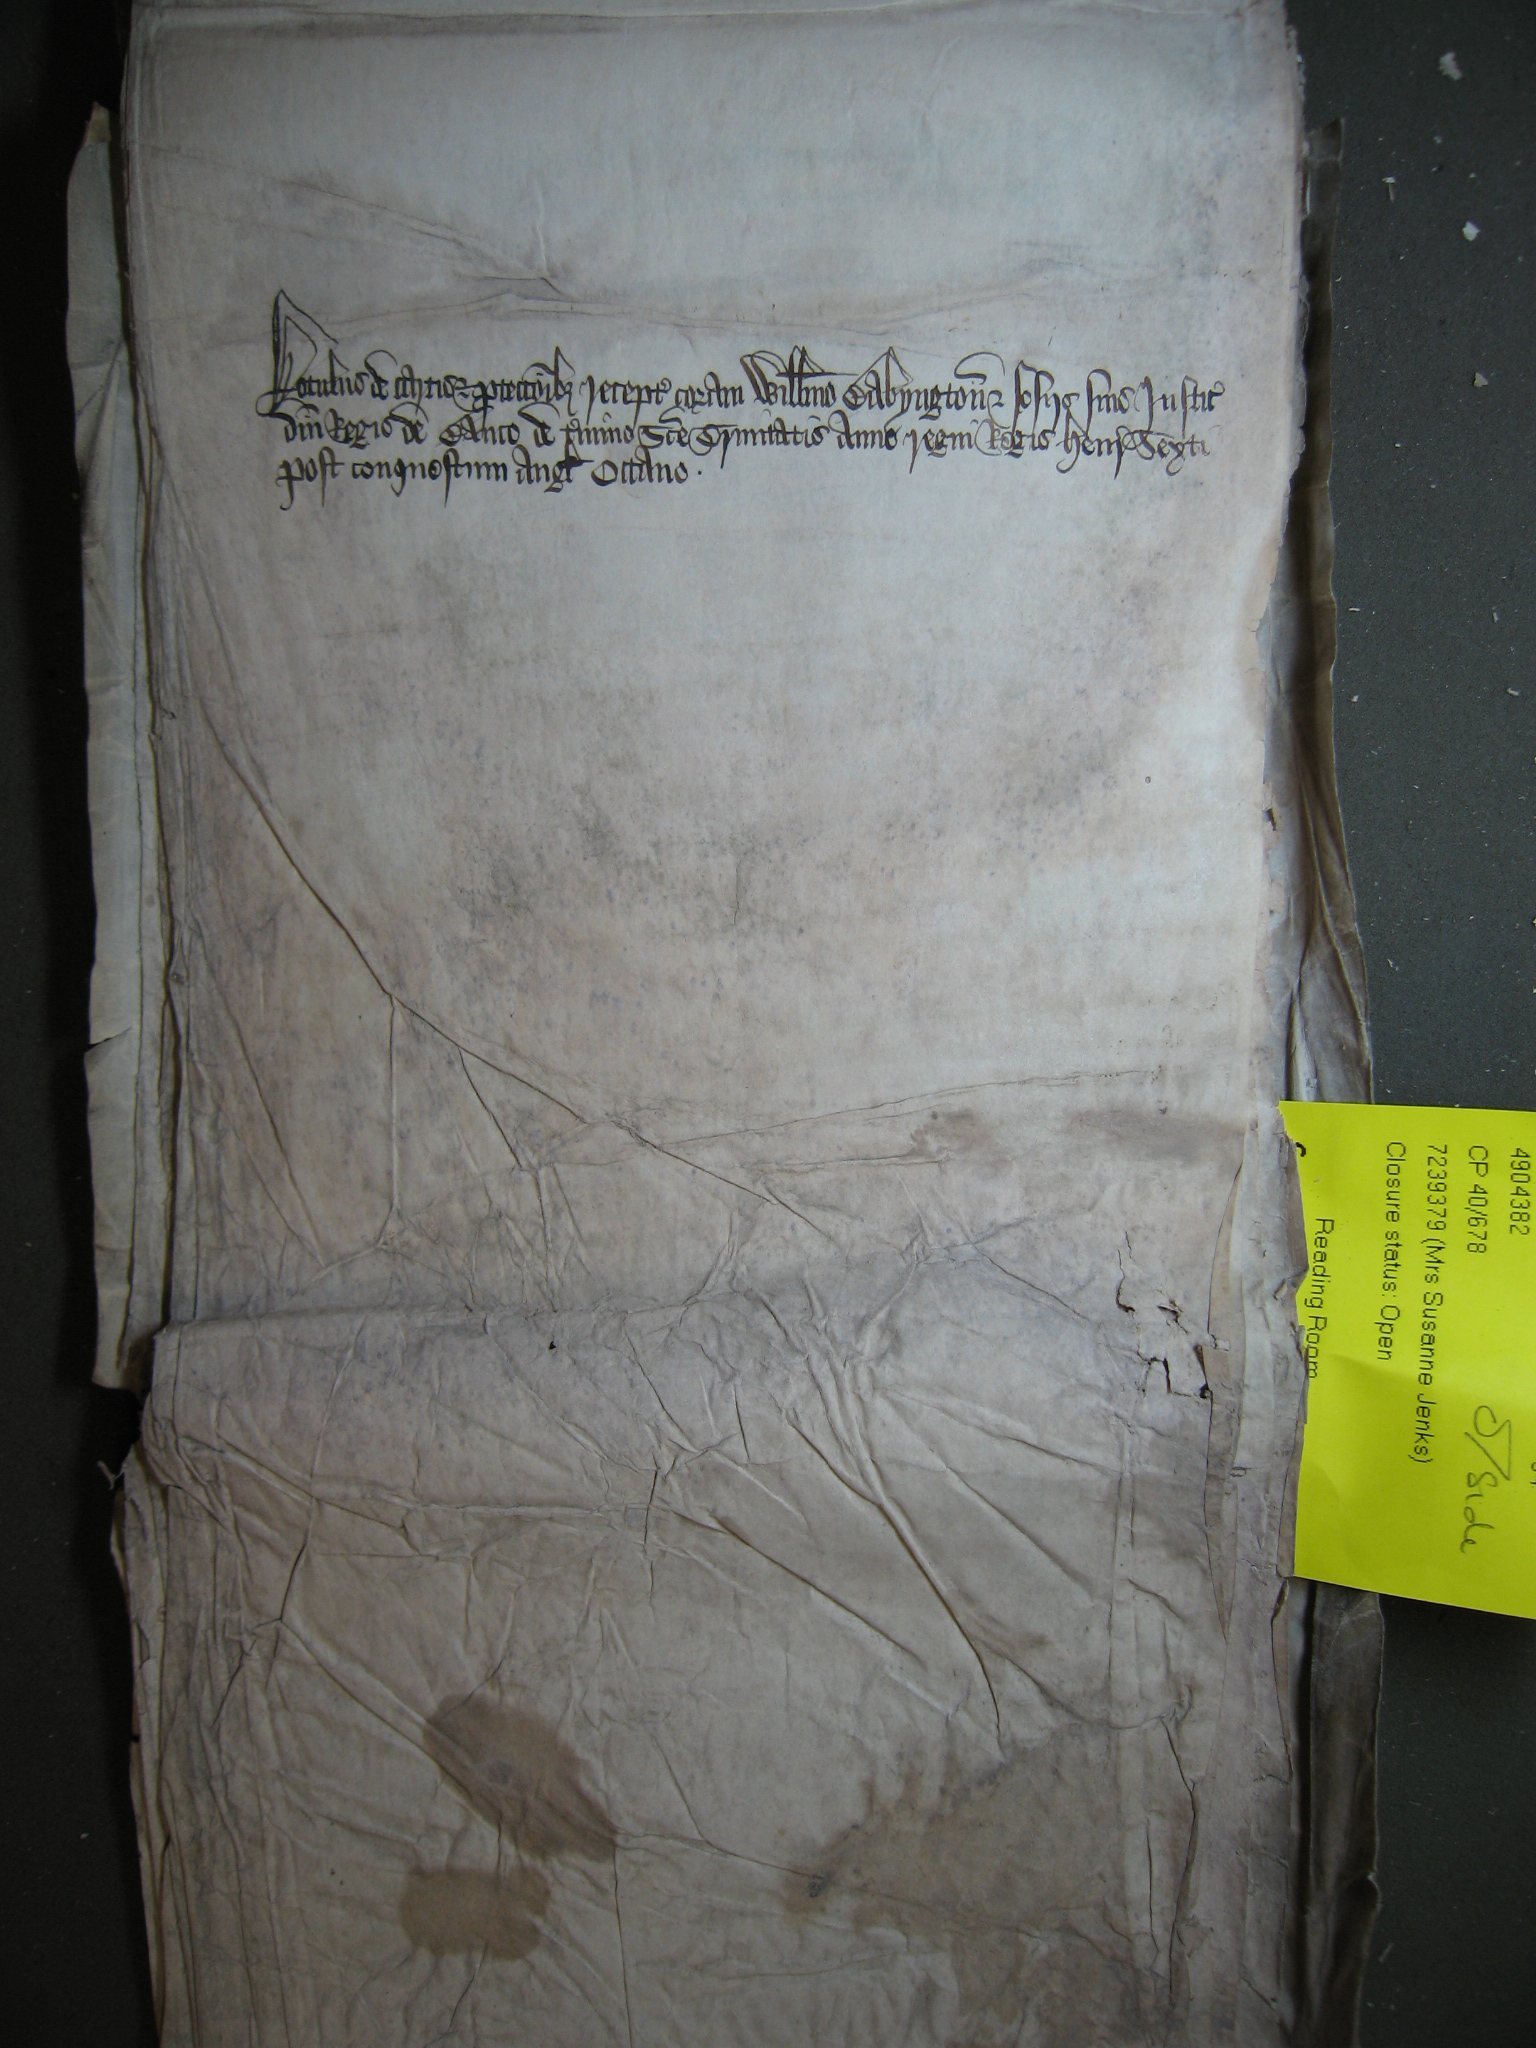 Rotulus de cartis & ꝓteccōibȝ recept̉ coram Willm̄o Babyngton̄ & socijs suis Justic̉
dn̄i Regis de Banco de ꝑmino Sc̄e Trinitatis Anno regni Regis Henr̉ Sexti
post conquestum Angl̉ Octauo .
4904382
CP 40/678
7239379 (Mrs Susanne Jenks)
Closure status: Open
Reading Room
O/Side